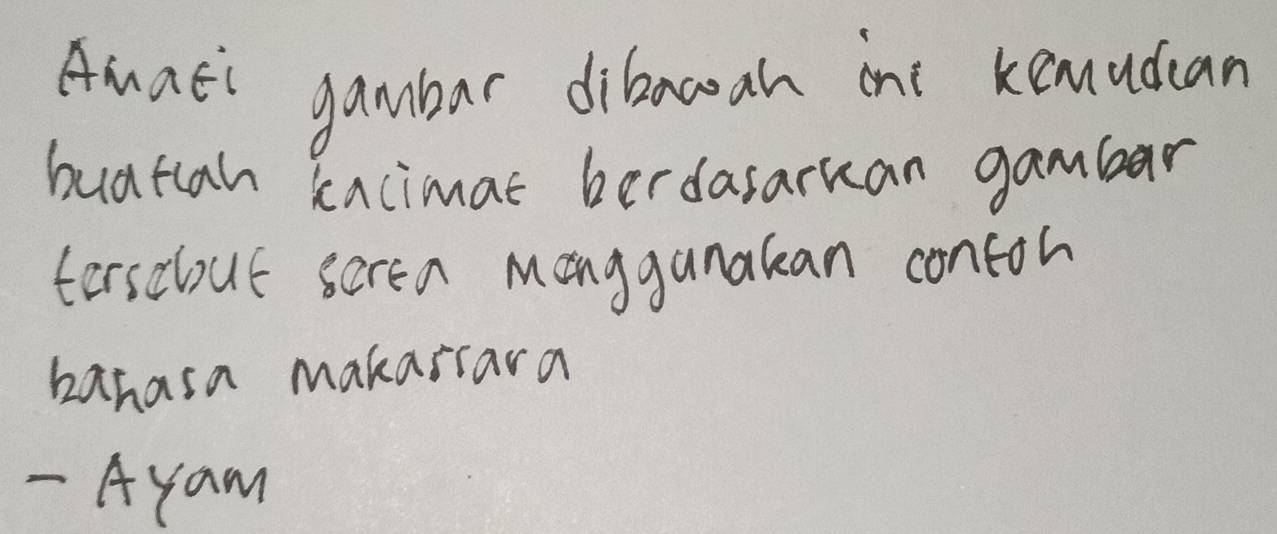 Amati gambar dibawah ini kemudian
buatlah kalimat berdasarkan gambar
tersebut serta menggunakan contoh
bahasa makassara
- Ayam